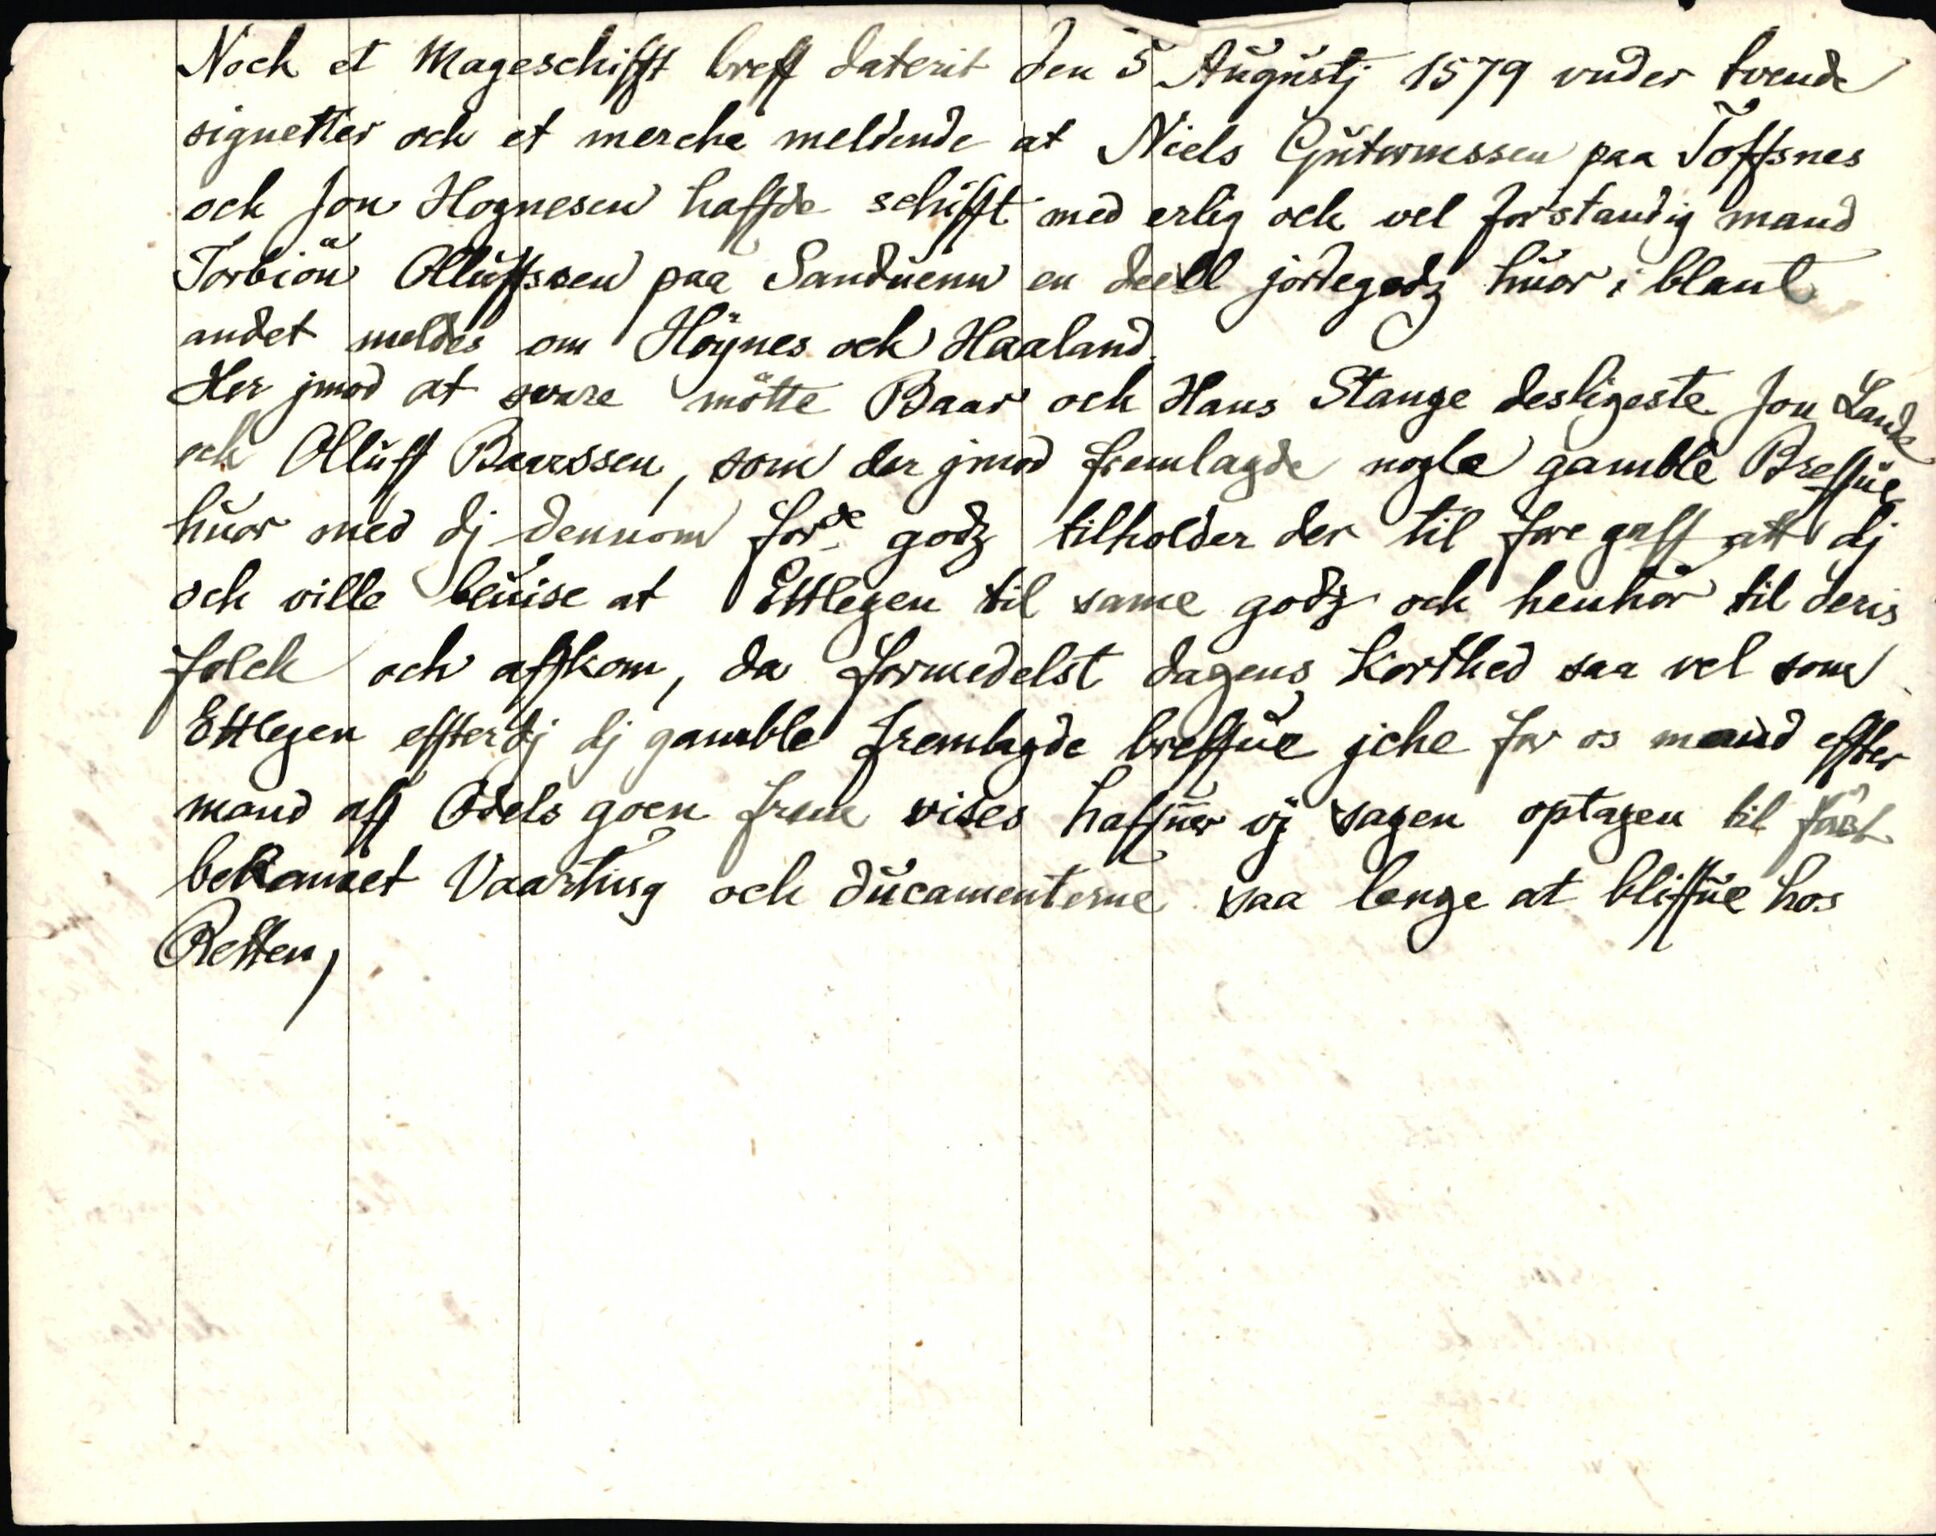 Noch et Mageschifft breff daterit den 5 Augustj 1579 vnder tvende
signetter och et merche meldende at Niels Gutormssen paa Toffsnes
och Jon Hognesen haffde schifft med erlig och vel forstandig mand
Torbiön Olluffssen paa Sanduenn en deell jordegodz huor i blant
andet meldes om Höynes och Haaland.
Her jmod at svare mötte Baar och Hans Stange desligeste Jon Lande
och Olluff Baarssen, som der jmod fremlagde nogle gamble Breffue
huor med dj dennom forde godz tilholder der til fore gaff att dj
och ville beuise at Ettlegen til same godz och henhör til deris
folck och affkom, da formedelst dagens Korthed saa vel som
Ettlegen effterdj dj gamble fremlagde breffue jche for os mand effter
mand aff Odels goen frem vises haffuer vj sagen optagen til först
bekomet Vaarting och ducamenterne saa lenge at bliffue hos
Retten,